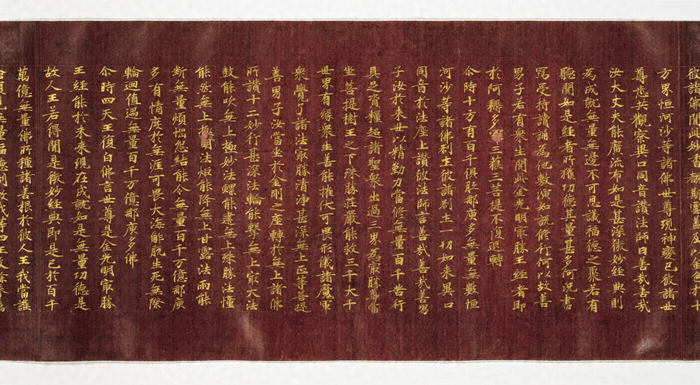 方界恒河沙等諸佛世尊現神變已彼諸世
尊悉共觀察異口同音讚法師曰善哉善哉
汝大丈夫能廣流布如是甚深微妙經典則
為成就無量無邊不可思議福德之聚若有
聽聞如是經者所獲功德其量甚多何況書
寫受持讀誦為他敷演如說修行何以故善
男子若有衆生聞此金光明最勝王經者即
於阿耨多羅三藐三菩提不復退轉
尒時十方有百千俱胝那庾多無量無數恒
河沙等諸佛剎土彼諸剎土一切如來異口
同音於法座上讚彼法師言善哉善哉善男
子汝於來世以精勤力當修無量百千苦行
具足資糧超諸聖衆出過三界為最勝尊當
坐菩提樹王之下殊勝莊嚴能救三千大千
世界有緣衆生善能摧伏可畏形儀諸魔軍
衆覺了諸法最勝清淨甚深無上正等菩提
善男子汝當坐於金剛之座轉於無上諸佛
所讚十二妙行甚深法輪能擊無上最大法
鼓能吹無上極妙法螺能建無上殊勝法幢
能然無上極明法炬能降無上甘露法雨能
斷無量煩惱怨結能令無量百千万億那庾
多有情度於無涯可畏大海解脫生死無際
輪迴值遇無量百千万億那庾多佛
尒時四天王復白佛言世尊是金光明最勝
王經能於未來現在成就如是無量功德是
故人王若得聞是微妙經典即是已於百千
萬億無量佛所種諸善根於彼人王我當護